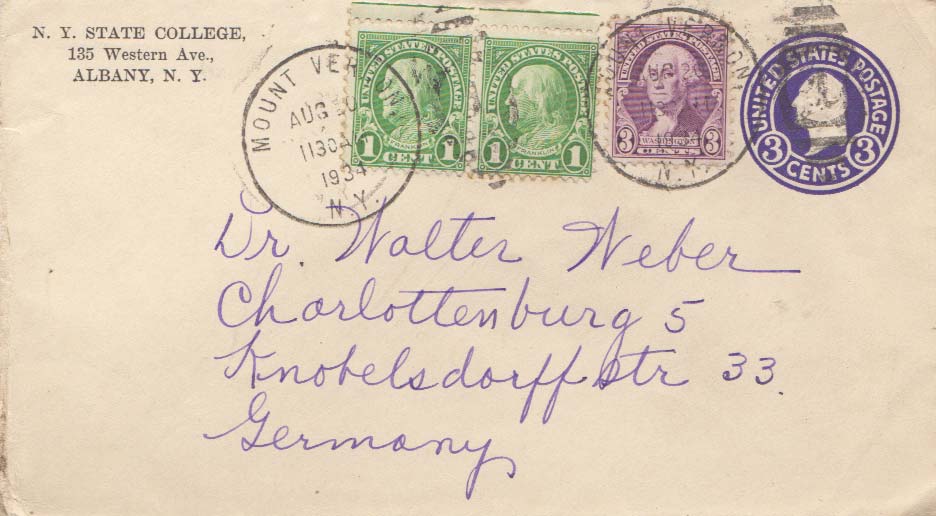 N. Y. STATE COLLEGE,
135 Western Ave.,
ALBANY, N. Y.
MOUNT VERNON
AUG 20
1130A
1934
N.Y.
UNITED STATES POSTAGE
FRANKLIN
1 CENT 1
UNITED STATES POSTAGE
FRANKLIN
1 CENT 1
UNITED STATES POSTAGE
WASHINGTON
3 3
VERNON
AUG 20
N.Y.
UNITED STATES POSTAGE
3 CENTS 3
Dr. Walter Weber
Charlottenburg 5
Knobelsdorffstr 33.
Germany